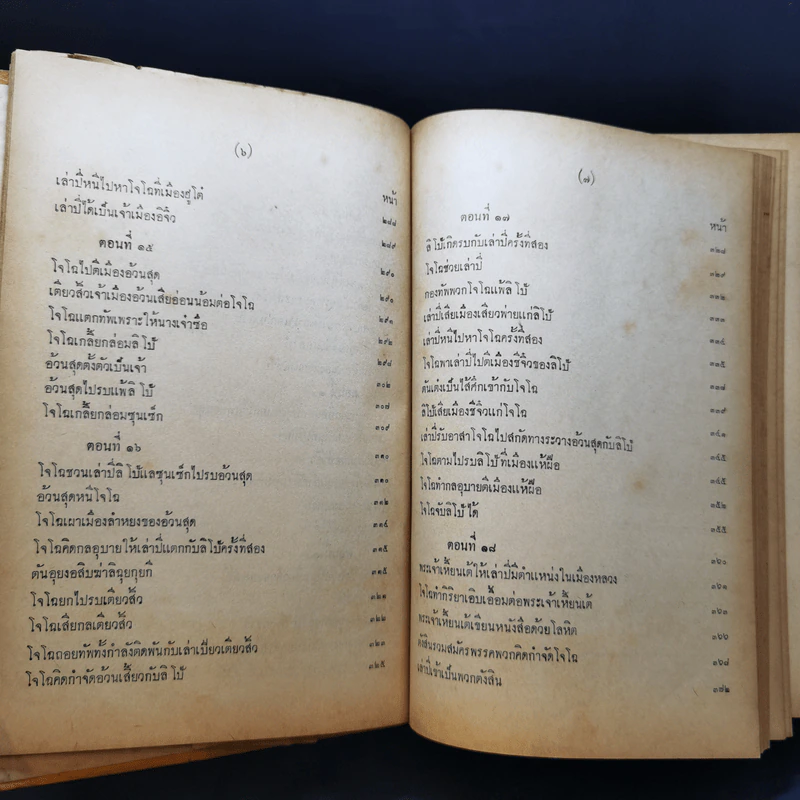 (๖)
หน้า
เล่าปี่หนีไปหาโจโฉที่เมืองฮูโต๋ ๒๘๘
เล่าปี่ได้เป็นเจ้าเมืองอิจิ๋ว ๒๘๙
ตอนที่ ๑๕ ๒๙๑
โจโฉไปตีเมืองอ้วนสุด ๒๙๑
เตียวสิ้วเจ้าเมืองอ้วนเสียอ่อนน้อมต่อโจโฉ ๒๙๑
โจโฉแตกทัพเพราะให้นางเจ๋าซือ ๒๙๒
โจโฉเกลี้ยกล่อมลิโป้ ๒๙๘
อ้วนสุดตั้งตัวเป็นเจ้า ๓๐๒
อ้วนสุดไปรบแพ้ลิโป้ ๓๐๗
โจโฉเกลี้ยกล่อมซุนเซ็ก ๓๐๙
ตอนที่ ๑๖ ๓๑๐
โจโฉชวนเล่าปี่ลิโป้แลซุนเซ็กไปรบอ้วนสุด ๓๑๐
อ้วนสุดหนีโจโฉ ๓๑๒
โจโฉเผาเมืองลำหยงของอ้วนสุด ๓๑๔
โจโฉคิดกลอุบายให้เล่าปี่แตกกับลิโป้ครั้งที่สอง ๓๑๕
ตันอุยงอสิบฆ่าลิฉุยกุยกี ๓๑๕
โจโฉยกไปรบเตียวสิ้ว ๓๒๑
โจโฉเสียกลเตียวสิ้ว ๓๒๒
โจโฉถอยทัพทั้งกำลังติดพันกับเล่าเปียวเตียวสิ้ว ๓๒๓
โจโฉคิดกำจัดอ้วนเสี้ยวกับลิโป้ ๓๒๕
(๗)
หน้า
ตอนที่ ๑๗ ๓๒๘
ลิโป้เกิดรบกับเล่าปี่ครั้งที่สอง ๓๒๙
โจโฉช่วยเล่าปี่
กองทัพพวกโจโฉแพ้ลิโป้ ๓๓๓
เล่าปี่เสียเมืองเสียวพ่ายแก่ลิโป้
เล่าปี่หนีไปหาโจโฉครั้งที่สอง ๓๓๕
โจโฉพาเล่าปี่ไปตีเมืองชีจิ๋วของลิโป้
ตันเต๋งเป็นไส้ศึกเข้ากับโจโฉ ๓๓๙
ลิโป้เสียเมืองชีจิ๋วแก่โจโฉ ๓๔๑
เล่าปี่รับอาสาโจโฉไปสกัดทางระวางอ้วนสุดกับลิโป้ ๓๔๕
โจโฉตามไปรบลิโป้ที่เมืองแห้ฝือ ๓๔๕
โจโฉทำกลอุบายตีเมืองแห้ฝือ ๓๕๒
โจโฉจับลิโป้ได้ ๓๕๕
ตอนที่ ๑๘ ๓๖๐
พระเจ้าเหี้ยนเต้ให้เล่าปี่มีตำแหน่งในเมืองหลวง ๓๖๑
โจโฉทำกิริยาเอิบเอื้อมต่อพระเจ้าเหี้ยนเต้ ๓๖๓
พระเจ้าเหี้ยนเต้เขียนหนังสือด้วยโลหิต ๓๖๖
ตังสินรวมสมัครพรรคพวกคิดกำจัดโจโฉ ๓๖๘
เล่าปี่เข้าเป็นพวกตังสิน ๓๗๒